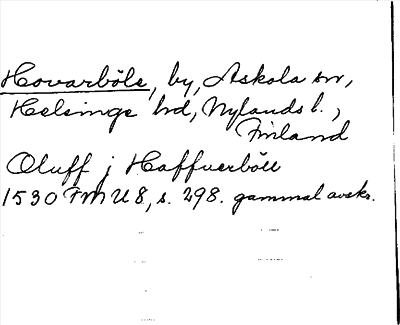 Hovarböle, by, Askola sn,
Helsinge hd, Nylands l.,
Finland
Oluff j Haffuerböll
1530 FMU 8, s. 298. gammal avskr.